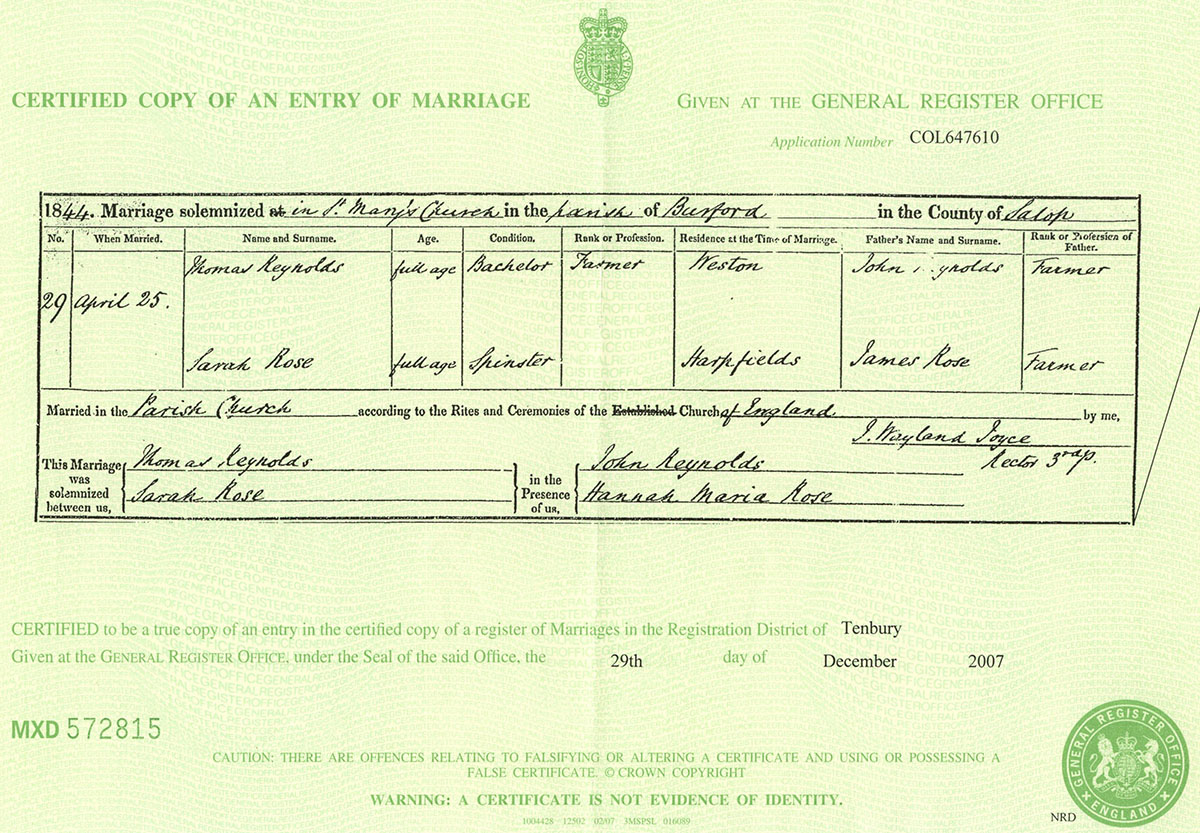 CERTIFIED COPY OF AN ENTRY OF MARRIAGE
GIVEN AT THE GENERAL REGISTER OFFICE
Application Number COL647610
1844. Marriage solemnized at in St. Mary's Church in the parish of Burford in the County of Salop
No. When Married. Name and Surname. Age. Condition. Rank or Profession. Residence at the Time of Marriage. Father's Name and Surname. Rank or Profession of Father.
Thomas Reynolds full age Bachelor Farmer Weston John Reynolds Farmer
29 April 25.
Sarah Rose full age Spinster Harpfields James Rose Farmer
Married in the Parish Church according to the Rites and Ceremonies of the Established Church of England by me,
J. Wayland Joyce
Rector 3rd p.
This Marriage was solemnized between us, Thomas Reynolds
Sarah Rose
in the Presence of us, John Reynolds
Hannah Maria Rose
CERTIFIED to be a true copy of an entry in the certified copy of a register of Marriages in the Registration District of Tenbury
Given at the GENERAL REGISTER OFFICE, under the Seal of the said Office, the 29th day of December 2007
MXD 572815
CAUTION: THERE ARE OFFENCES RELATING TO FALSIFYING OR ALTERING A CERTIFICATE AND USING OR POSSESSING A
FALSE CERTIFICATE. © CROWN COPYRIGHT
WARNING: A CERTIFICATE IS NOT EVIDENCE OF IDENTITY.
1004428 12502 02/07 3MSPSL 016089
NRD
GENERAL REGISTER OFFICE
ENGLAND